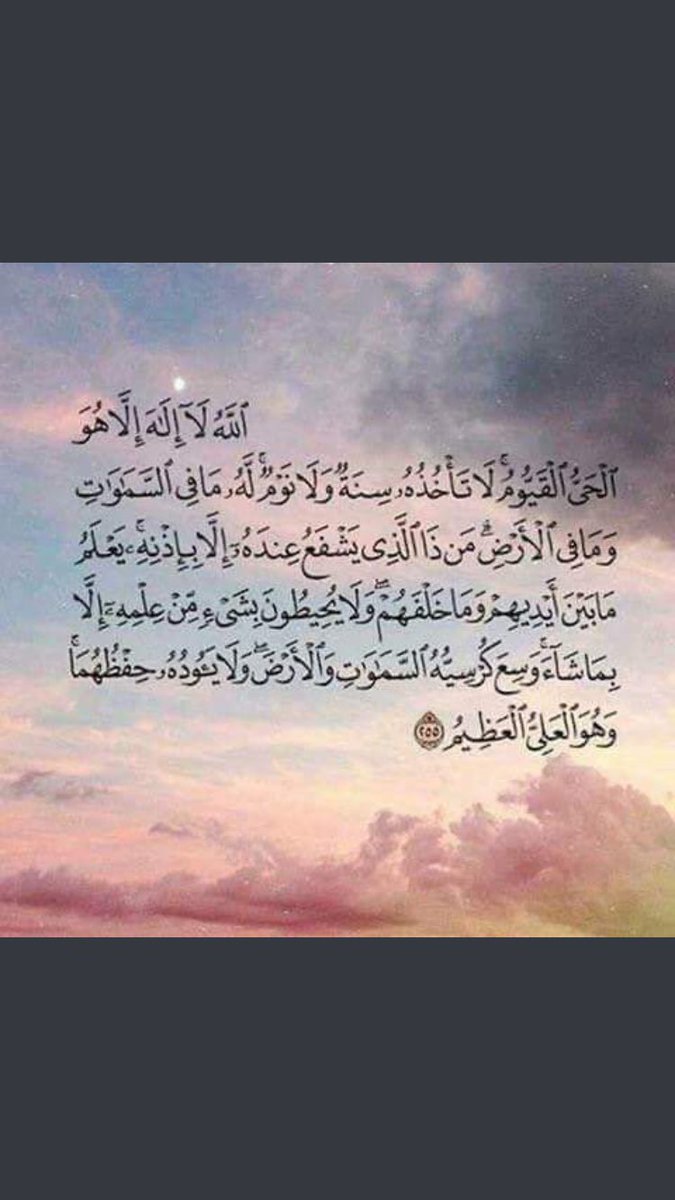 ٱللَّهُ لَآ إِلَٰهَ إِلَّا هُوَ
ٱلْحَىُّ ٱلْقَيُّومُ ۚ لَا تَأْخُذُهُۥ سِنَةٌ وَلَا نَوْمٌ ۚ لَّهُۥ مَا فِى ٱلسَّمَٰوَٰتِ
وَمَا فِى ٱلْأَرْضِ ۗ مَن ذَا ٱلَّذِى يَشْفَعُ عِندَهُۥٓ إِلَّا بِإِذْنِهِۦ ۚ يَعْلَمُ
مَا بَيْنَ أَيْدِيهِمْ وَمَا خَلْفَهُمْ ۖ وَلَا يُحِيطُونَ بِشَىْءٍ مِّنْ عِلْمِهِۦٓ إِلَّا
بِمَا شَآءَ ۚ وَسِعَ كُرْسِيُّهُ ٱلسَّمَٰوَٰتِ وَٱلْأَرْضَ ۖ وَلَا يَـُٔودُهُۥ حِفْظُهُمَا ۚ
وَهُوَ ٱلْعَلِىُّ ٱلْعَظِيمُ ٢٥٥